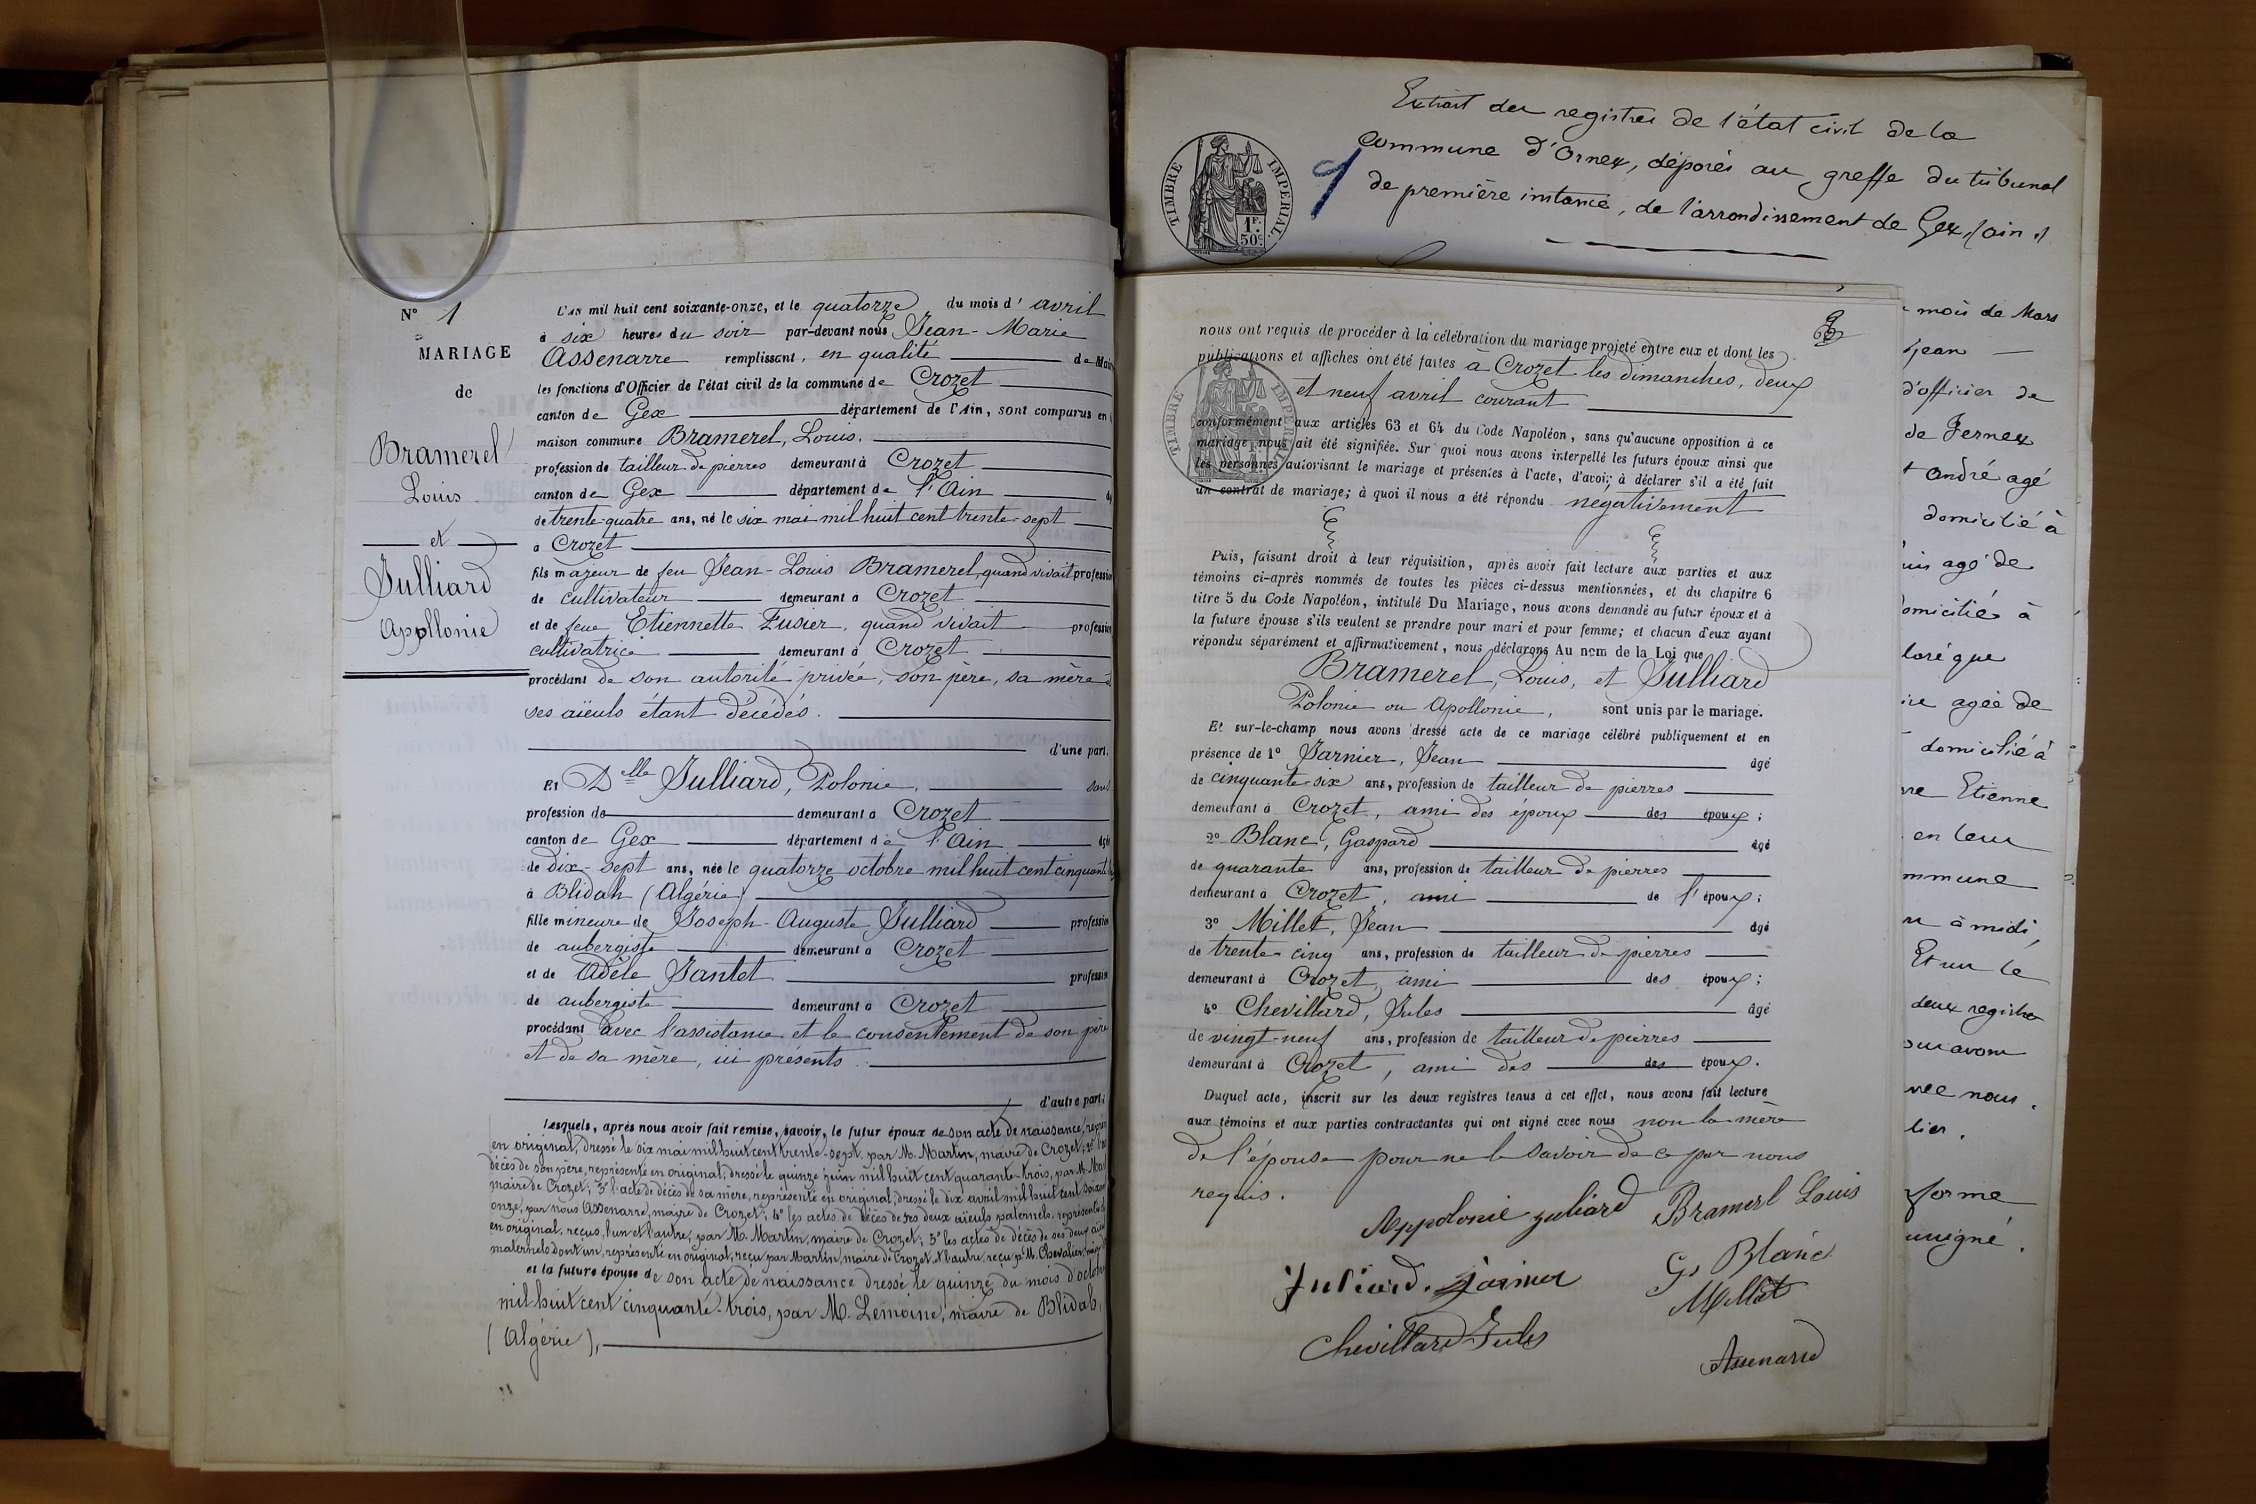 N° 1
MARIAGE
de
Bramerel
Louis
et
Julliard
Apollonie
L'an mil huit cent soixante-onze, et le quatorze du mois d'avril
à six heures du soir par-devant nous Jean-Marie
Assenarre remplissant, en qualité de Maire
les fonctions d'Officier de l'état civil de la commune de Crozet
canton de Gex département de l'Ain, sont comparus en
maison commune Bramerel, Louis.
profession de tailleur de pierres demeurant à Crozet
canton de Gex département de l'Ain
de trente-quatre ans, né le six mai mil huit cent trente-sept
a Crozet
fils majeur de feu Jean-Louis Bramerel, quand vivait profession
de cultivateur demeurant a Crozet
et de feue Etiennette Fusier, quand vivait profession
cultivatrice demeurant à Crozet
procédant de son autorité privée, son père, sa mère
ses aïeuls étant décédés.
d'une part.
Et Delle Julliard, Polonie, sans
profession de demeurant a Crozet
canton de Gex département de l'Ain âgée
de dix-sept ans, née le quatorze octobre mil huit cent cinquante
à Blidah (Algérie)
fille mineure de Joseph-Auguste Julliard profession
de aubergiste demeurant a Crozet
et de Adèle Jantet profession
de aubergiste demeurant à Crozet
procédant avec l'assistance et le consentement de son père
et de sa mère, ici présents.
d'autre part.
Lesquels, après nous avoir fait remise, savoir, le futur époux de son acte de naissance,
en original, dressé le six mai mil huit cent trente-sept, par M. Martin, maire de Crozet; 2°
décès de son père, représenté en original, dressé le quinze juin mil huit cent quarante-trois, par M.
maire de Crozet; 3° l'acte de décès de sa mère, représenté en original, dressé le dix avril mil huit cent
onze, par nous Assenarre, maire de Crozet; 4° les actes de décès de ses deux aïeuls paternels, représentés
en original, reçus, l'un et l'autre, par M. Martin, maire de Crozet; 5° les actes de décès de ses deux
maternels dont un, représenté en original, reçu par Martin, maire de Crozet et l'autre, reçu p. M. Chevalier,
et la future épouse de son acte de naissance dressé le quinze du mois d'octobre
mil huit cent cinquante-trois, par M. Lemoine, maire de Blidah,
(Algérie),
Extrait des registres de l'état civil de la
commune d'Ornex, déposés au greffe du tribunal
de première instance, de l'arrondissement de Gex, (ain.)
TIMBRE IMPERIAL
1F. 50c.
9
nous ont requis de procéder à la célébration du mariage projeté entre eux et dont les
publications et affiches ont été faites à Crozet les dimanches, deux
et neuf avril courant
conformément aux articles 63 et 64 du Code Napoléon, sans qu'aucune opposition à ce
mariage nous ait été signifiée. Sur quoi nous avons interpellé les futurs époux ainsi que
les personnes autorisant le mariage et présentes à l'acte, d'avoir à déclarer s'il a été fait
un contrat de mariage; à quoi il nous a été répondu négativement
Puis, faisant droit à leur réquisition, après avoir fait lecture aux parties et aux
témoins ci-après nommés de toutes les pièces ci-dessus mentionnées, et du chapitre 6
titre 5 du Code Napoléon, intitulé Du Mariage, nous avons demandé au futur époux et à
la future épouse s'ils veulent se prendre pour mari et pour femme; et chacun d'eux ayant
répondu séparément et affirmativement, nous déclarons Au nom de la Loi que
Bramerel, Louis, et Julliard
Polonie ou Apollonie, sont unis par le mariage.
Et sur-le-champ nous avons dressé acte de ce mariage célébré publiquement et en
présence de 1° Jarnier, Jean âgé
de cinquante-six ans, profession de tailleur de pierres
demeurant à Crozet, ami des époux des époux;
2° Blanc, Gaspard âgé
de quarante ans, profession de tailleur de pierres
demeurant à Crozet, ami de l'époux;
3° Millet, Jean âgé
de trente cinq ans, profession de tailleur de pierres
demeurant à Crozet, ami des époux;
4° Chevillard, Jules âgé
de vingt-neuf ans, profession de tailleur de pierres
demeurant à Crozet, ami des des époux.
Duquel acte, inscrit sur les deux registres tenus à cet effet, nous avons fait lecture
aux témoins et aux parties contractantes qui ont signé avec nous non la mère
de l'épouse pour ne le savoir de ce par nous
requis.
Appolonie juliard Bramerel Louis
Juliard. Jarnier Gd Blanc
Millet
Chevillard Jules
Assenarre
mois de Mars
Jean
d'officier de
de Fernex
André agé
domicilié à
agé de
domicilié à
que
agée de
domicilié à
Etienne
en leur
mmune
à midi,
Et sur le
deux registres
avons
nous.
forme